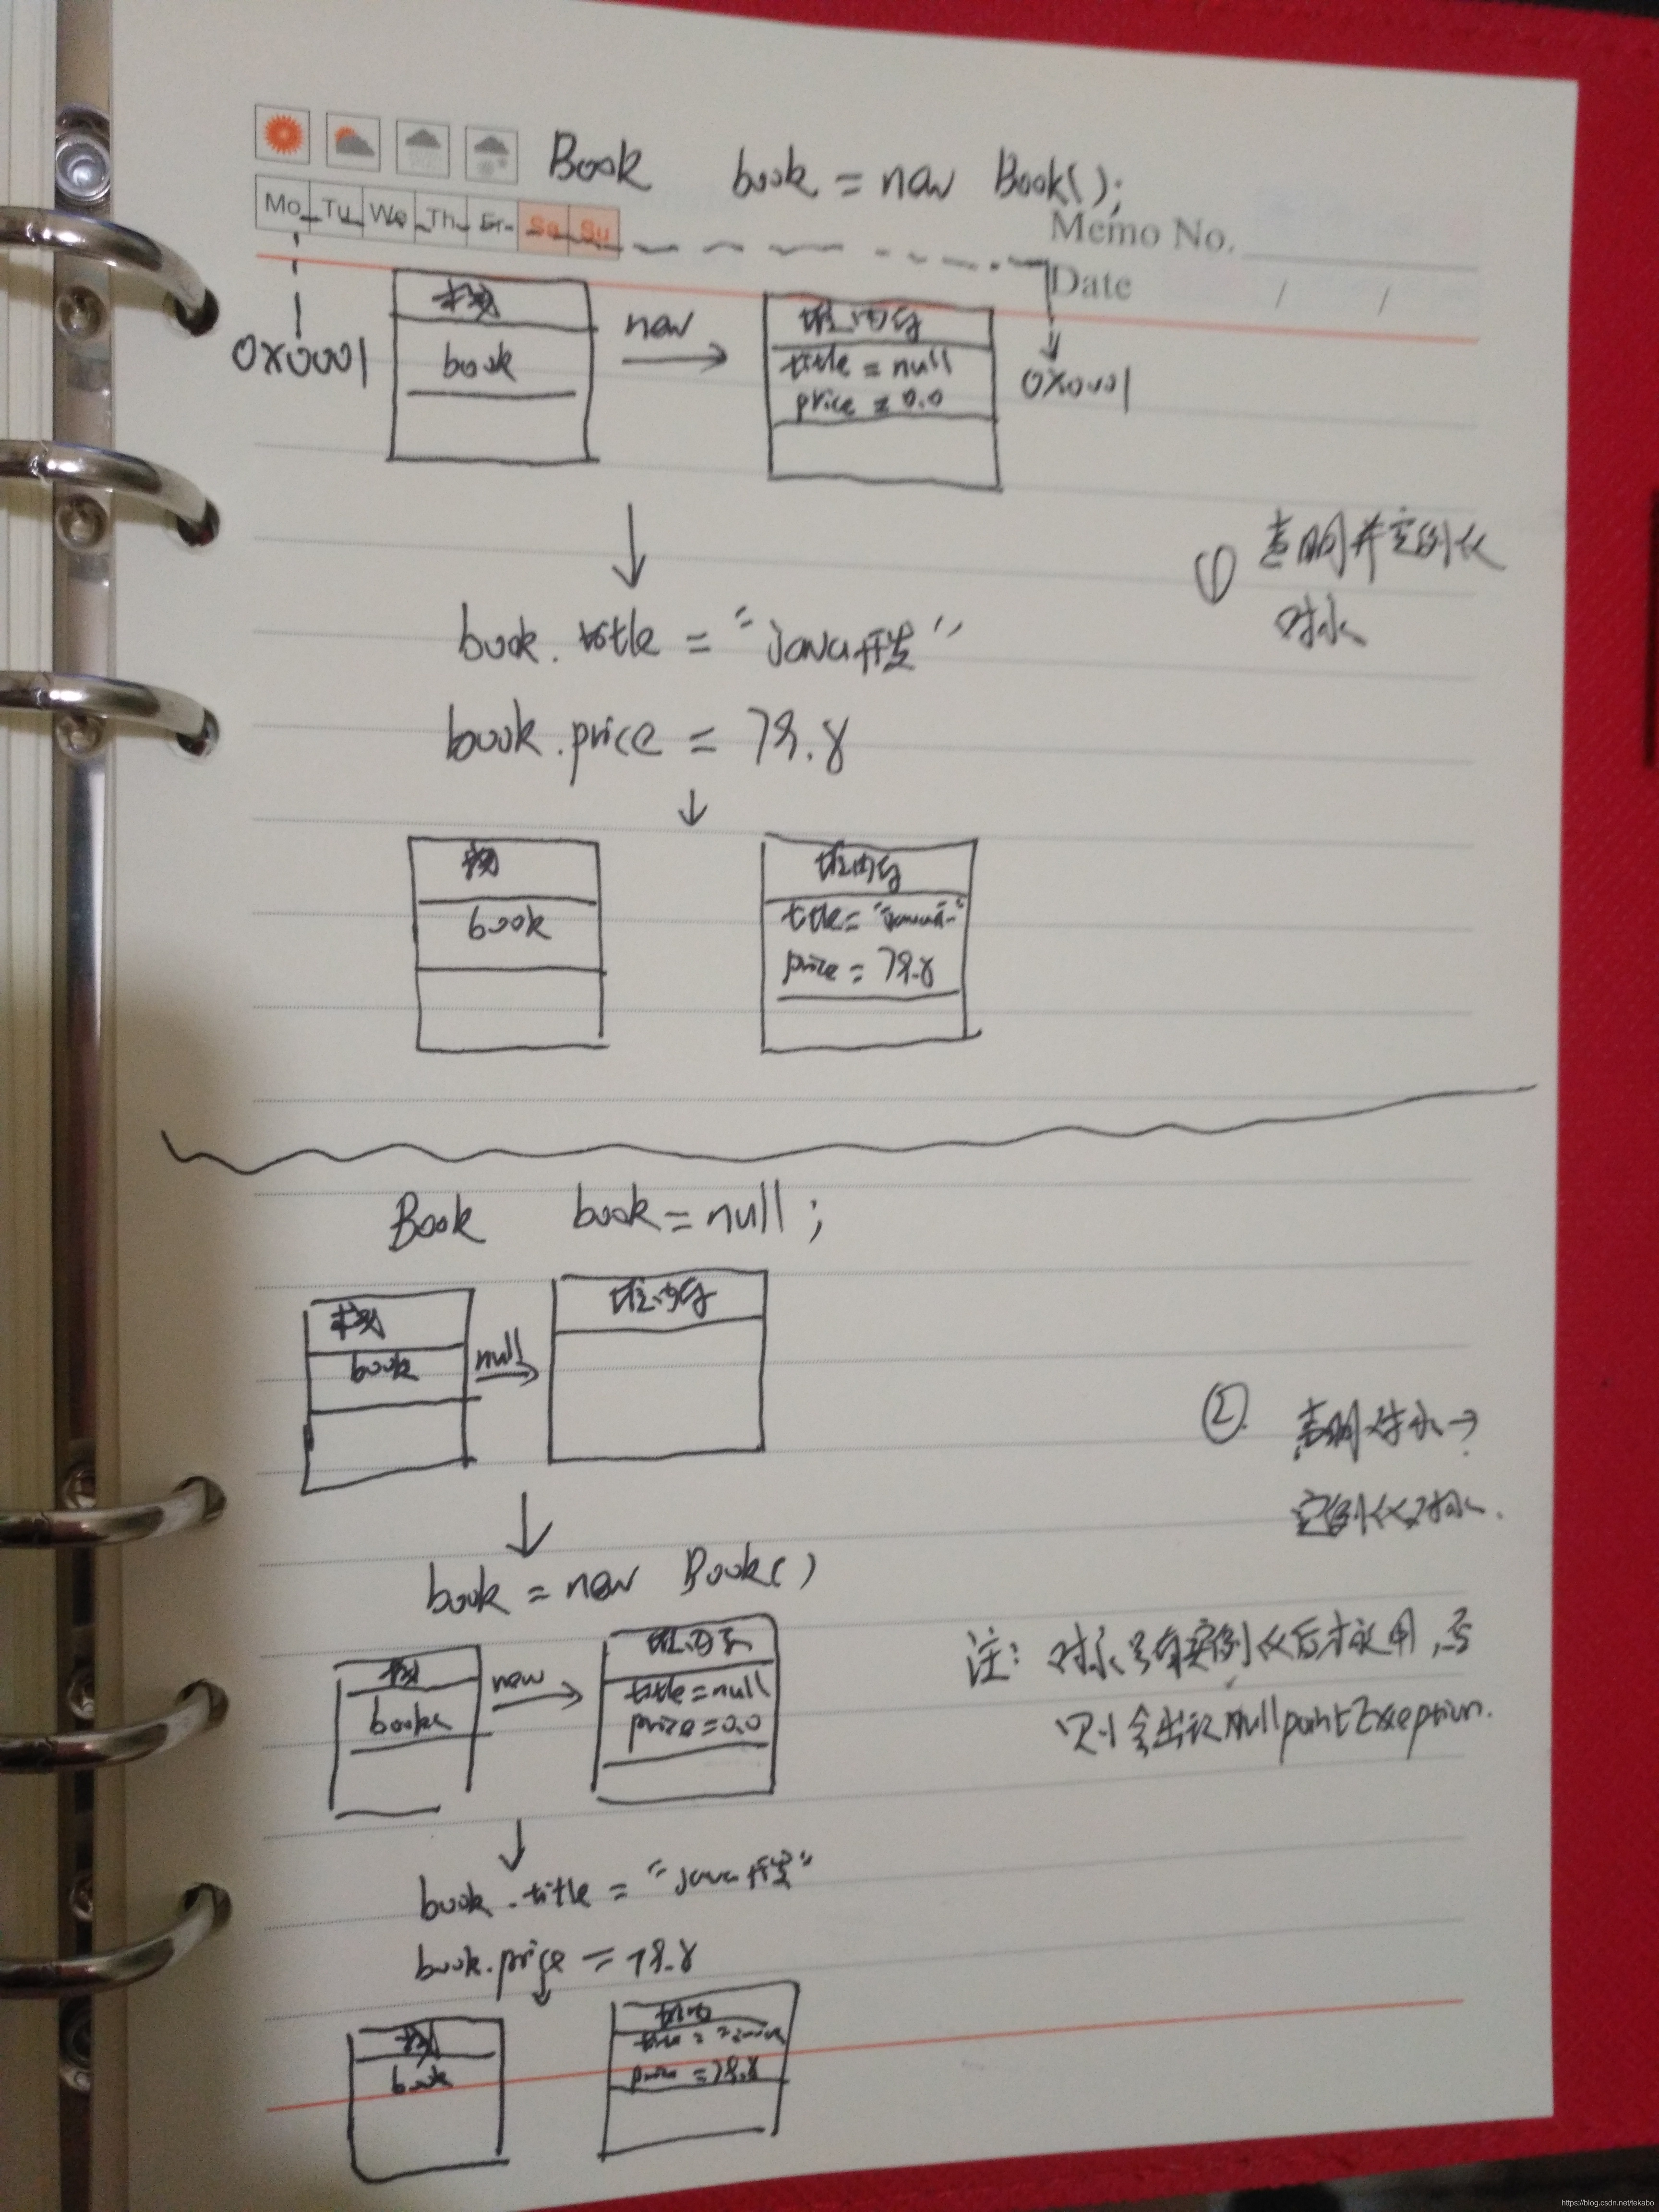 Book book = new Book();
Mo Tu We Th Fr Sa Su
Memo No.
Date / /
0x0001
栈
book
new
堆内存
title = null
price = 0.0
0x0001
① 声明并实例化
对象
book.title = "java开发"
book.price = 79.8
栈
book
堆内存
title = "java开
price = 79.8
Book book = null;
栈
book
null
堆内存
② 声明对象→
实例化对象.
book = new Book()
栈
book
new
堆内存
title = null
price = 0.0
注: 对象只有实例化后才能用,否
则会出现NullpointException.
book.title = "java开发"
book.price = 79.8
栈
book
price = 79.8
https://blog.csdn.net/tekabo